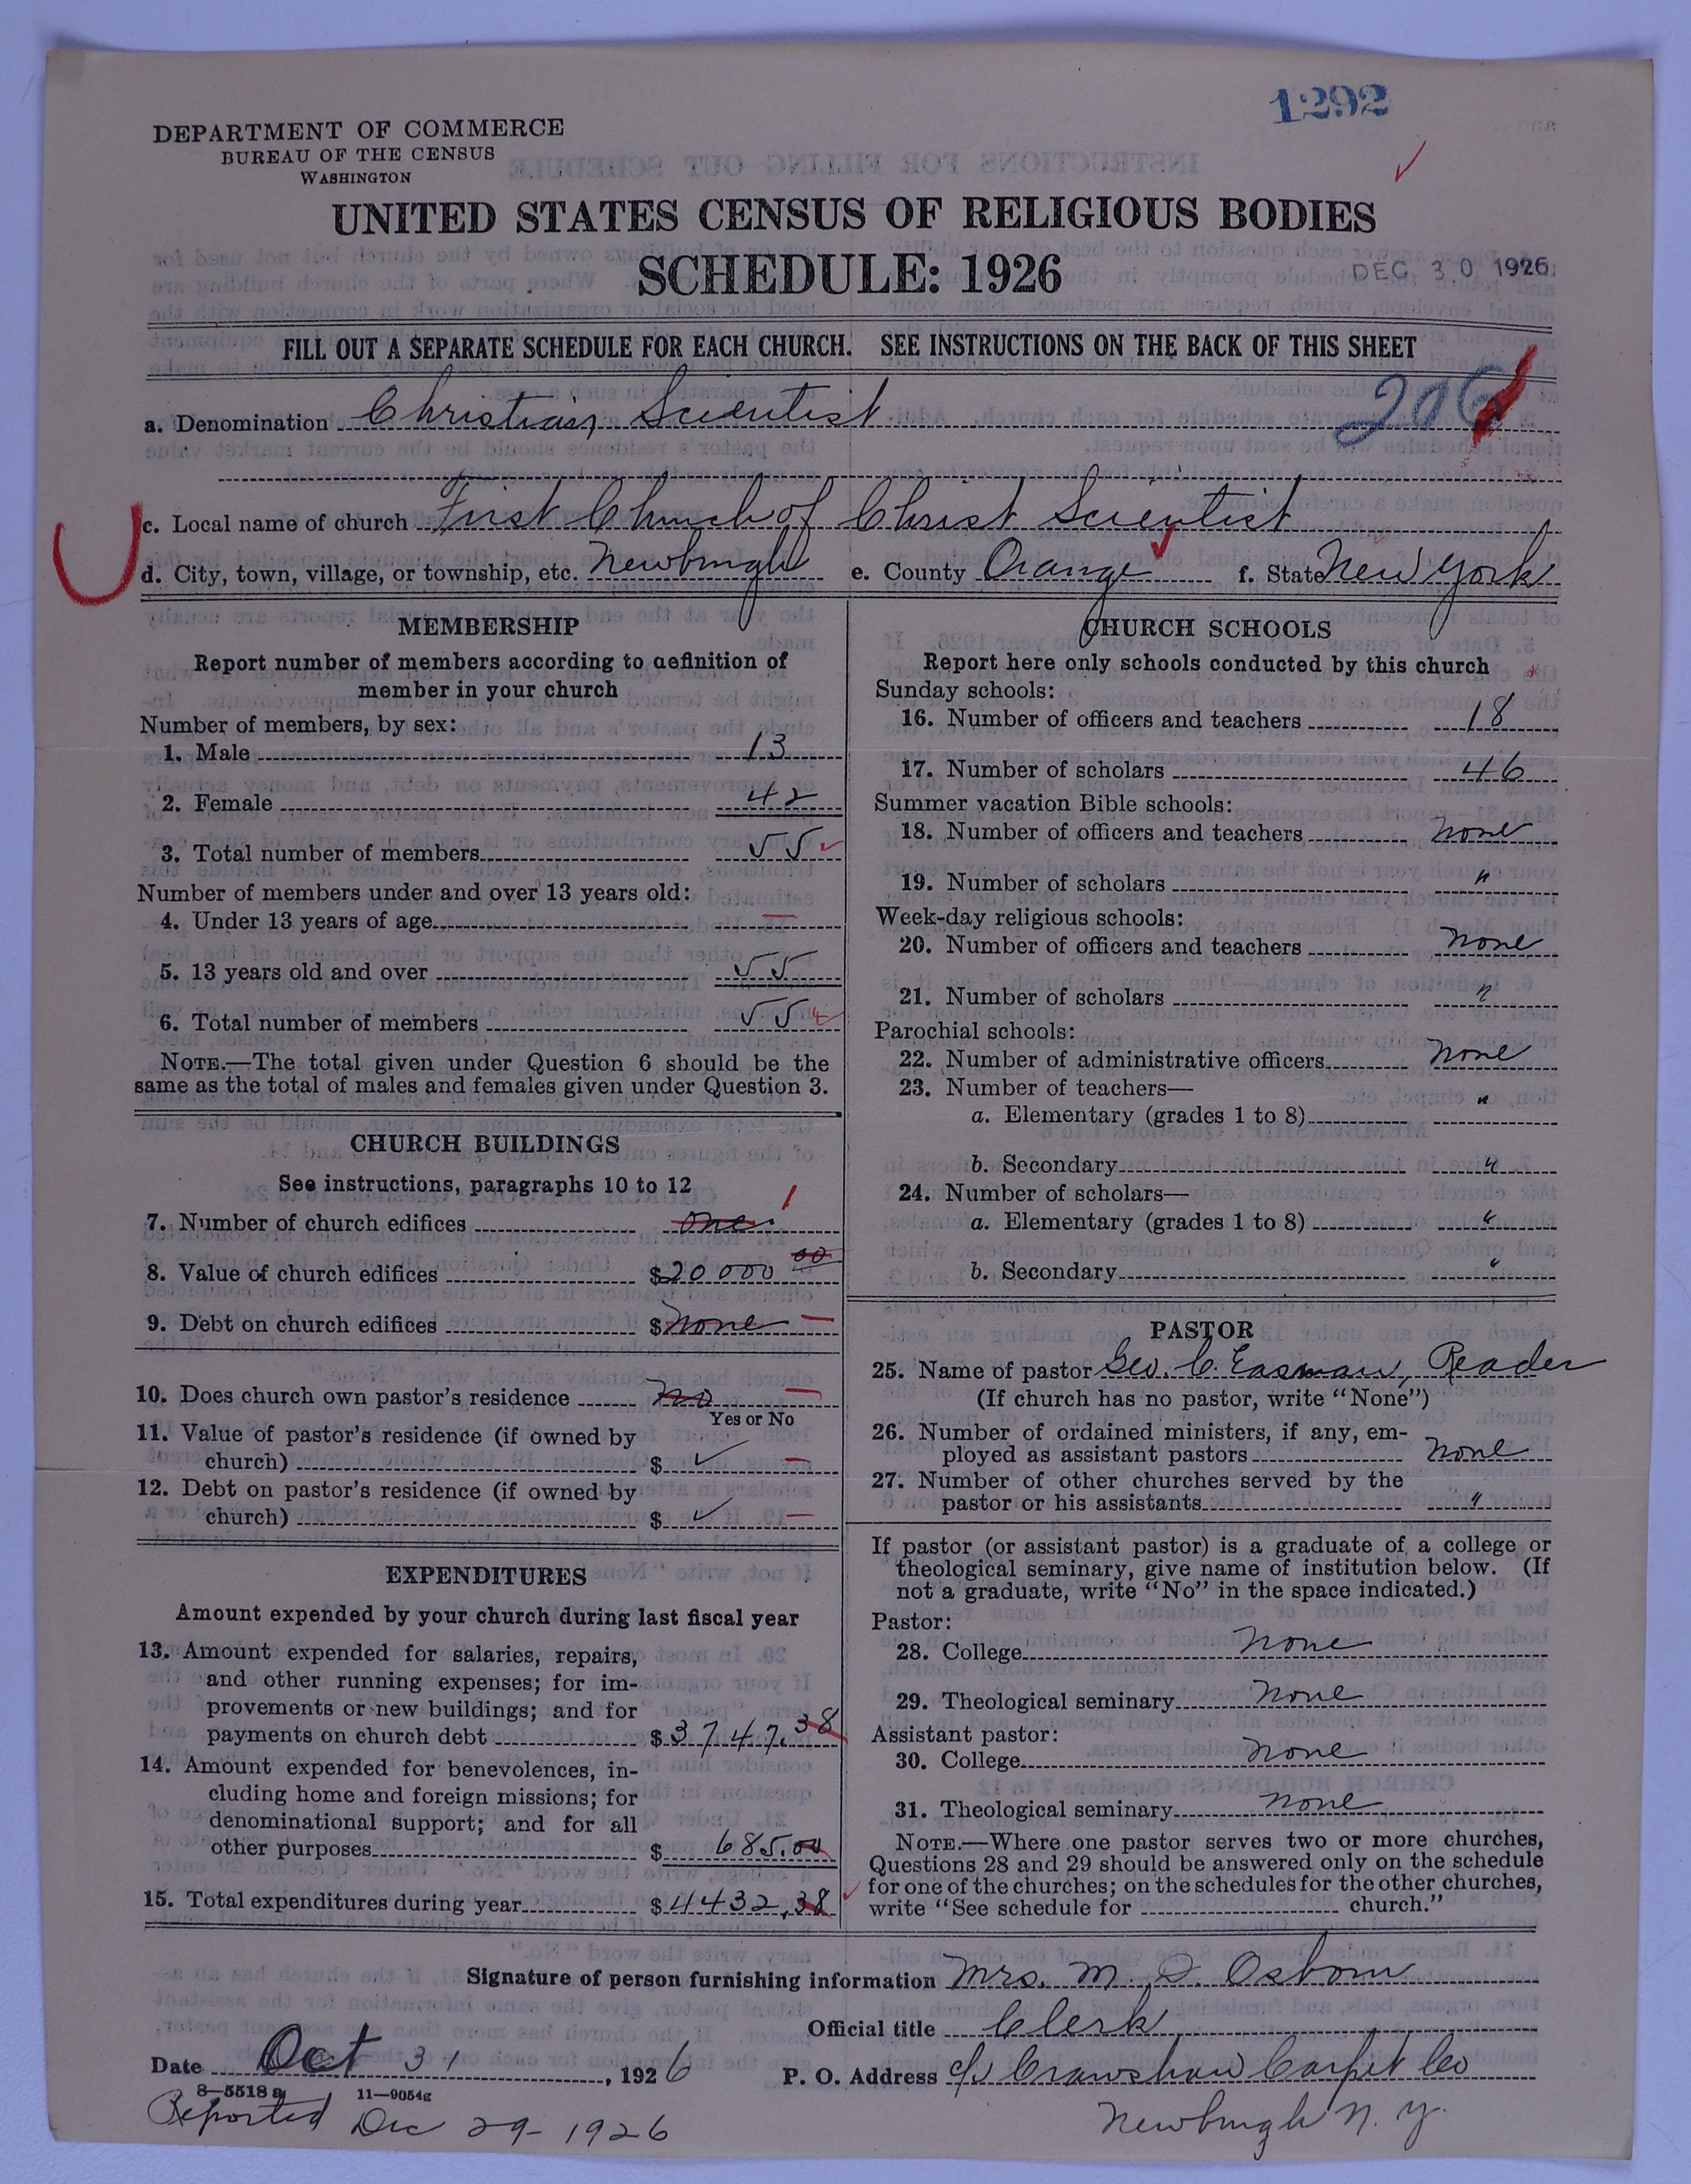 1292
DEPARTMENT OF COMMERCE
BUREAU OF THE CENSUS
WASHINGTON
UNITED STATES CENSUS OF RELIGIOUS BODIES
SCHEDULE: 1926
DEC 30 1926
FILL OUT A SEPARATE SCHEDULE FOR EACH CHURCH. SEE INSTRUCTIONS ON THE BACK OF THIS SHEET
206
a. Denomination Christian Scientist
c. Local name of church First Church of Christ Scientist
d. City, town, village, or township, etc. Newburgh e. County Orange f. State New York
MEMBERSHIP
Report number of members according to definition of
member in your church
Number of members, by sex:
1. Male 13
2. Female 42
3. Total number of members 55
Number of members under and over 13 years old:
4. Under 13 years of age —
5. 13 years old and over 55
6. Total number of members 55
NOTE.—The total given under Question 6 should be the
same as the total of males and females given under Question 3.
CHURCH BUILDINGS
See instructions, paragraphs 10 to 12
7. Number of church edifices one 1
8. Value of church edifices $20000 00
9. Debt on church edifices $none —
10. Does church own pastor's residence no —
Yes or No
11. Value of pastor's residence (if owned by
church) $ ✓ —
12. Debt on pastor's residence (if owned by
church) $ ✓ —
EXPENDITURES
Amount expended by your church during last fiscal year
13. Amount expended for salaries, repairs,
and other running expenses; for im-
provements or new buildings; and for
payments on church debt $3747.38
14. Amount expended for benevolences, in-
cluding home and foreign missions; for
denominational support; and for all
other purposes $ 685.00
15. Total expenditures during year $4432.38
CHURCH SCHOOLS
Report here only schools conducted by this church
Sunday schools:
16. Number of officers and teachers 18
17. Number of scholars 46
Summer vacation Bible schools:
18. Number of officers and teachers none
19. Number of scholars "
Week-day religious schools:
20. Number of officers and teachers none
21. Number of scholars "
Parochial schools:
22. Number of administrative officers none
23. Number of teachers—
a. Elementary (grades 1 to 8) "
b. Secondary "
24. Number of scholars—
a. Elementary (grades 1 to 8) "
b. Secondary "
PASTOR
25. Name of pastor Geo. C. Easman, Reader
(If church has no pastor, write "None")
26. Number of ordained ministers, if any, em-
ployed as assistant pastors none
27. Number of other churches served by the
pastor or his assistants "
If pastor (or assistant pastor) is a graduate of a college or
theological seminary, give name of institution below. (If
not a graduate, write "No" in the space indicated.)
Pastor:
28. College none
29. Theological seminary none
Assistant pastor:
30. College none
31. Theological seminary none
NOTE.—Where one pastor serves two or more churches,
Questions 28 and 29 should be answered only on the schedule
for one of the churches; on the schedules for the other churches,
write "See schedule for church."
Signature of person furnishing information Mrs. M. D. Osborn
Official title Clerk
Date Oct 31, 1926 P. O. Address c/o Crawshaw Carpet Co
8—5518a 11—9054g
Reported Dec 29- 1926
Newburgh N. Y.